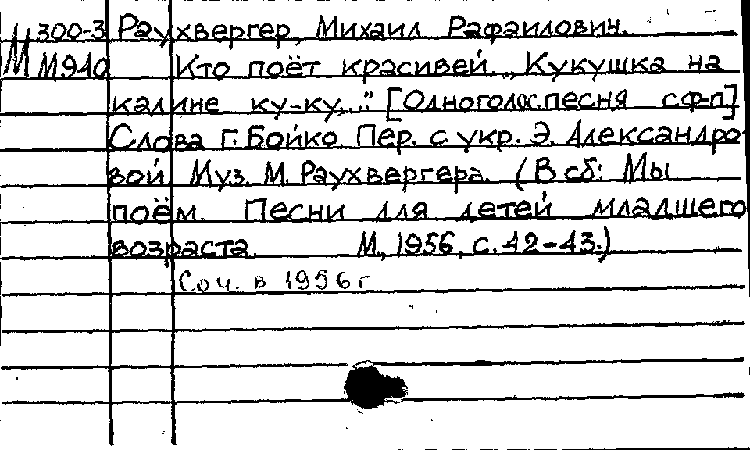 М 300-3 Раухвергер, Михаил Рафаилович.
М940 Кто поёт красивей. „Кукушка на
калине ку-ку..." [Одноголос.песня с ф-п]
Слова Г. Бойко. Пер. с укр. Э. Александро
вой. Муз. М. Раухвергера. (В сб: Мы
поём. Песни для детей младшего
возраста. М, 1956, с. 42-43.)
Соч. в 1956 г